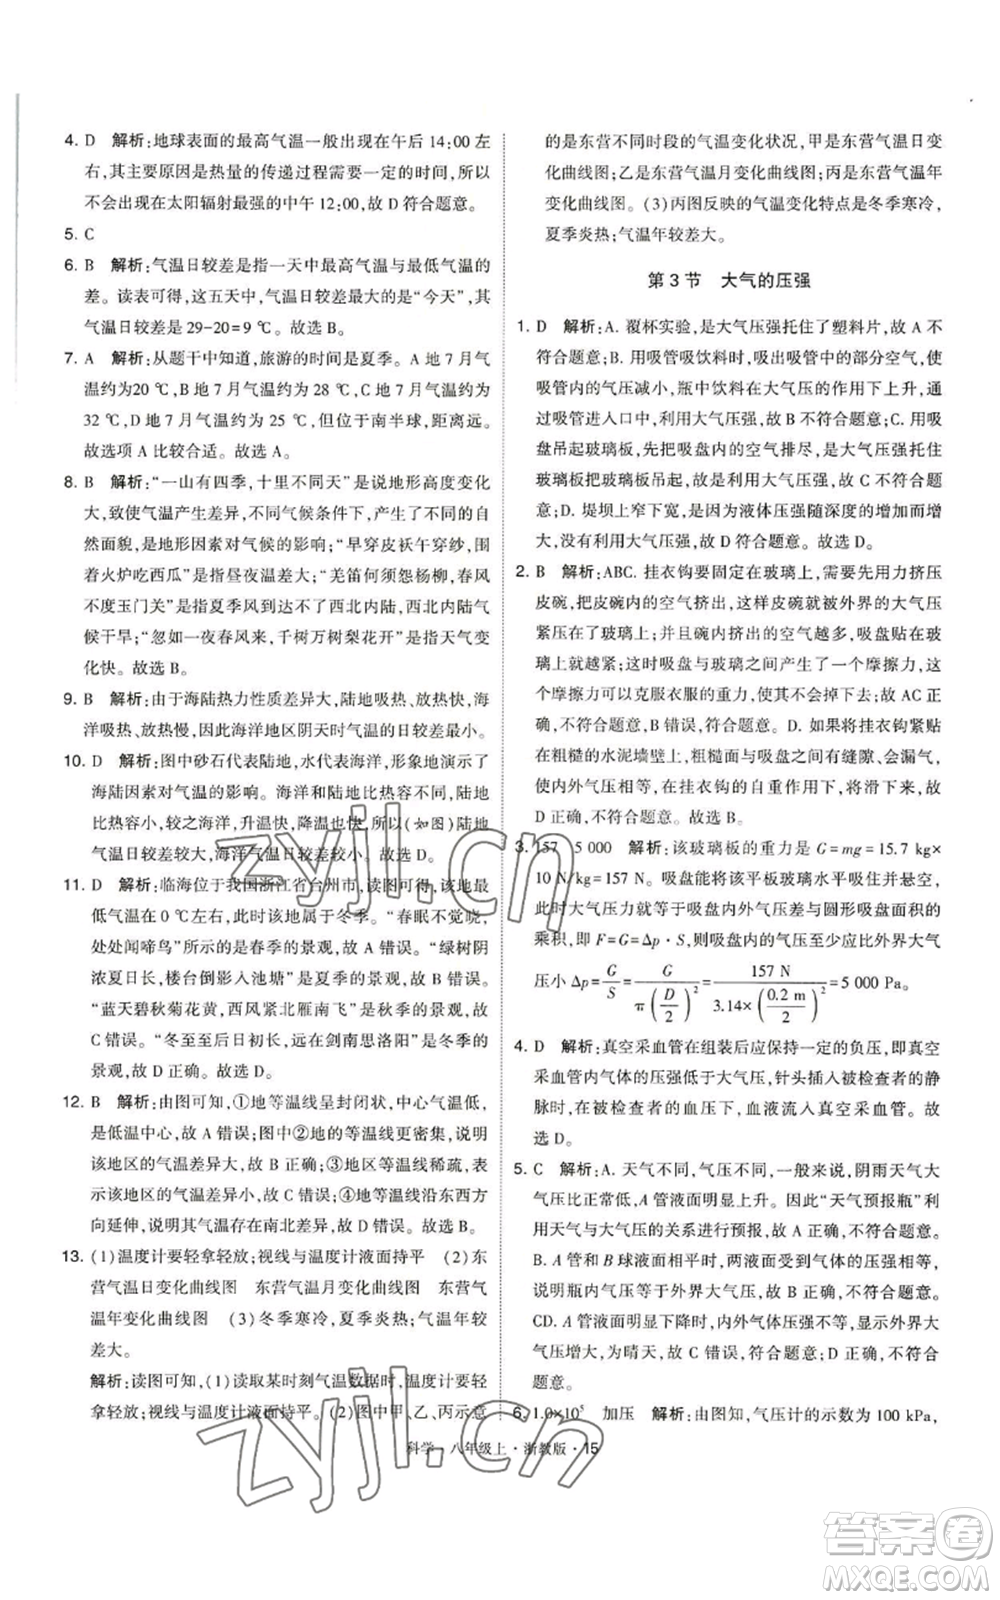 4. D　解析:地球表面的最高气温一般出现在午后 14:00 左
右,其主要原因是热量的传递过程需要一定的时间,所以
不会出现在太阳辐射最强的中午 12:00,故 D 符合题意。
5. C
6. B　解析:气温日较差是指一天中最高气温与最低气温的
差。读表可得,这五天中气温日较差最大的是“今天”,其
气温日较差是 29-20=9 ℃。故选 B。
7. A　解析:从题干中知道,旅游的时间是夏季。A 地 7 月气
温约为20 ℃,B 地 7 月气温约为 28 ℃,C 地 7 月气温约为
32 ℃,D 地 7 月气温约为 25 ℃,但位于南半球,距离远。
故选项 A 比较合适。故选 A。
8. B　解析:“一山有四季,十里不同天”是说地形高度变化
大,致使气温产生差异,在不同高度条件下,产生了不同的自
然面貌,是地形因素对气候的影响;“早穿皮袄午穿纱,围
着火炉吃西瓜”是指昼夜温差大;“羌笛何须怨杨柳,春风
不度玉门关”是指夏季风到达不了西北内陆,西北内陆气
候干旱;“忽如一夜春风来,千树万树梨花开”是指天气变
化快。故选 B。
9. B　解析:由于海陆热力性质差异大,陆地吸热、放热快,海
洋吸热、放热慢,因此海洋地区阴天时气温的日较差最小。
10. D　解析:图中砂石代表陆地,水代表海洋,形象地演示了
海陆因素对气温的影响。海洋和陆地比热容不同,陆地
比热容较小,较之海洋,升温快,降温也快,所以(如图)陆地
气温日较差较大,海洋气温日较差较小。故选 D。
11. D　解析:临海位于我国浙江省台州市,读图可得,该地气
温在 0 ℃左右,此时该地属于冬季。“春眠不觉晓,
处处闻啼鸟”所示的是春季的景观,故 A 错误。“绿树阴
浓夏日长,楼台倒影入池塘”是夏季的景观,故 B 错误。
“蓝天碧秋菊花黄,西风紧北雁南飞”是秋季的景观,故
C 错误。“冬至至后日初长,远在剑南思洛阳”是冬季的
景观,故 D 正确。故选 D。
12. B　解析:由图可知,①地等温线呈封闭状,中心气温低,
是低温中心,故 A 错误;图中②地的等温线更密集,说明
该地区的气温差异大,故 B 正确;③地等温线稀疏,表示
该地区的气温差异小,故 C 错误;④地等温线沿东西方
向延伸,说明其气温的南北差异大,故 D 错误。故选 B。
13. (1)温度计要轻拿轻放;视线与温度计液面持平　(2)东
营气温日变化曲线图　东营气温月变化曲线图　东营气
温年变化曲线图　(3)冬季寒冷,夏季炎热;气温年较
差大。
解析:读图可知,(1)读取某时刻气温数据时,温度计要轻
拿轻放;视线与温度计液面持平。(2)图中甲、乙、丙示意
的是东营不同时段的气温变化状况,甲是东营气温日变
化曲线图;乙是东营气温月变化曲线图;丙是东营气温年
变化曲线图。(3)丙图反映的气温变化特点是冬季寒冷,
夏季炎热;气温年较差大。
第 3 节　大气的压强
1. D　解析:A. 覆杯实验,是大气压强托住了塑料片,故 A 不
符合题意;B. 用吸管吸饮料时,吸出管中的部分空气,使
吸管内的气压减小,瓶中饮料在大气压的作用下上升,通
过吸管进入口中,利用大气压强,故 B 不符合题意;C. 用吸
盘吊起玻璃板,吸盘内的空气排尽,大气压强托住
玻璃板,把玻璃板吊起,这是利用大气压强,故 C 不符合题
意;D. 堤坝上窄下宽,是因为液体压强随深度的增加而增
大,与大气压强无关,故 D 符合题意。故选 D。
2. B　解析:ABC. 挂衣钩要固定在玻璃上,需要先用力挤压
皮碗,把皮碗内的空气挤出,这样皮碗就被外界的大气压
紧压在了玻璃上;并且碗内挤出的空气越多,吸盘贴在玻
璃上就越紧,此时吸盘与玻璃之间产生了一个摩擦力,这
个摩擦力可以克服衣服的重力,使其不会掉下去;故 AC正
确,不符合题意,B 错误,符合题意。D. 如果将挂衣钩紧贴
在粗糙的水泥墙壁上,粗糙面与吸盘间有缝隙、会漏气,
不会紧贴在一起,在挂衣钩的自重作用下,将下滑,故
D 正确,不符合题意。故选 B。
3. 157　5 000　解析:该玻璃板的重力是 G=mg=15.7 kg×
10 N/kg=157 N。吸盘能将该平板玻璃水平吸住并悬空,
此时大气压力等于吸盘内外气压差与圆形吸盘面积的
乘积,即 F=G=Δp·S,吸盘内的气压至少应比外界大气
压小 Δp=G/S=G/(π(D/2)²)=157 N/(3.14×(0.2 m/2)²)=5 000 Pa。
4. D　解析:真空采血管在组装后应保持一定的负压,即真空
采血管内气体的压强低于大气压,针头插入被检查者的静
脉时,在被检查者的血压下,血液流入真空采血管。故
选 D。
5. C　解析:A. 天气不同,气压不同,一般来说,阴雨天气大
气压较低,A 管液面明显上升。因此“天气预报瓶”利
用天气与大气压的关系进行预报,故 A 正确,不符合题意。
B. A 管和 B 球液面上方相平时,两液面受到的压强相等,
说明瓶内气压等于外界大气压,故 B 正确,不符合题意。
CD. A 管液面明显下降时,内外气体压强不相等,外界大气
压强大,应为晴天,故 C 错误,符合题意;D 正确,不符合
题意。
6. 1.0×10⁵　加压　解析:由图知,气压计的示数为 100 kPa,
科学·八年级上·浙教版·15
zyjl.cn
zyjl.cn
答案圈
MXQE.COM